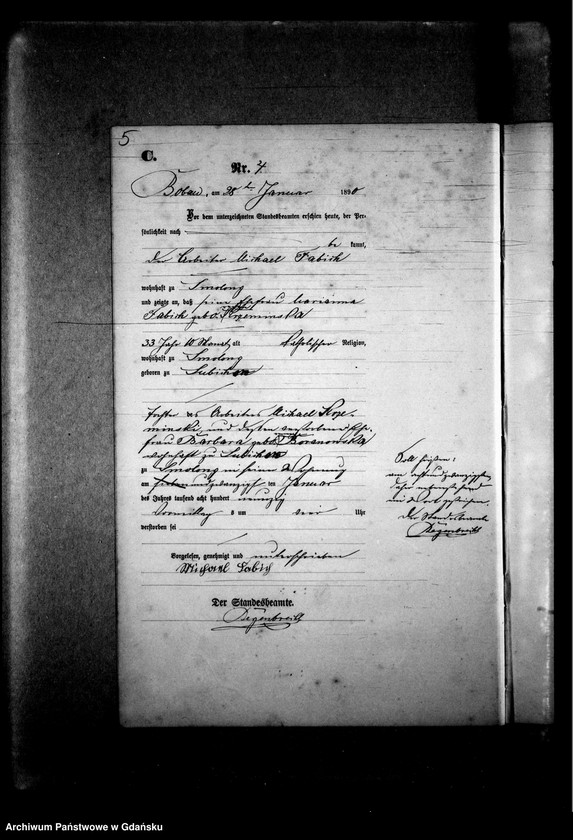 5
C.
Nr. 4.
Bobau, am 28ten Januar 1890
Vor dem unterzeichneten Standesbeamten erschien heute, der Per-
sönlichkeit nach
be kannt,
der Arbeiter Michael Fabich
wohnhaft zu Smolong
und zeigte an, daß seine Ehefrau Marianna
Fabich geb. Krzeminska
33 Jahr 10 Monat alt katholischer Religion,
wohnhaft zu Smolong
geboren zu Lubichow
Tochter des Arbeiters Michael Krze-
minski und dessen verstorbene Ehe-
frau Barbara geb.
wohnhaft zu Lubichow
zu Smolong in seiner Wohnung
am sieben undzwanzigsten Januar
des Jahres tausend acht hundert neunzig
Vormittags um vier Uhr
verstorben sei
Vorgelesen, genehmigt und unterschrieben
Michael Fabich
Der Standesbeamte.
Degenbrecht
Soll heißen:
am achtundzwanzigsten
Der Standesbeamte
Degenbrecht
Archiwum Państwowe w Gdańsku